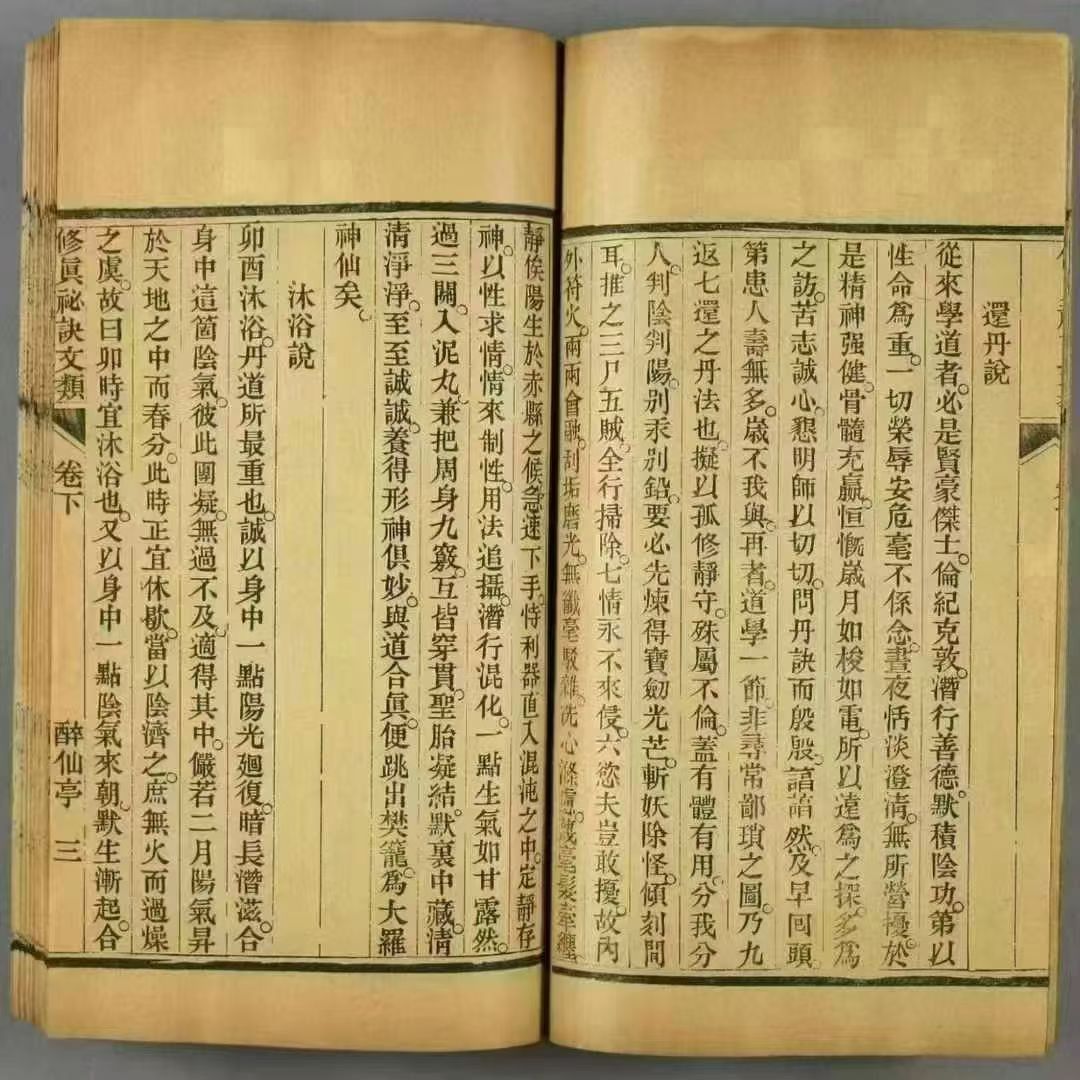 還丹說
從來學道者。必是賢豪傑士。倫紀克敦。潛行善德。默積陰功。第以
性命爲重。一切榮辱安危毫不係念。晝夜恬淡澄淸。無所營擾。於
是精神强健。骨髓充羸。恒慨歲月如梭如電。所以遠爲之探。多爲
之訪。苦志誠心。懇明師以切切。問丹訣而殷殷。諳諳然。及早回頭
第患人壽無多。歲不我與。再者。道學一節。非尋常鄙瑣之圖。乃九
返七還之丹法也。擬以孤修靜守。殊屬不倫。蓋有體有用。分我分
人。判陰判陽。別汞別鉛。要必先煉得寶劒光芒。斬妖除怪。傾刻間
耳。推之三尸五賊。全行掃除。七情永不來侵。六慾夫豈敢擾。故內
外符火。兩兩會融。刮垢磨光。無纖毫駁雜。洗心滌慮。毫髮牽纏
靜俟陽生於赤縣之候。急速下手。恃利器直入混沌之中。定靜存
神。以性求情。情來制性。用法追攝。潛行混化。一點生氣如甘露然。
過三關。入泥丸。兼把周身九竅。互皆穿貫。聖胎凝結。默裏中藏。淸
淸淨淨。至至誠誠。養得形神俱妙。與道合眞。便跳出樊籠。爲大羅
神仙矣。
沐浴說
卯酉沐浴。丹道所最重也。誠以身中一點陽光廻復。暗長潛滋。合
身中這箇陰氣。彼此團凝。無過不及。適得其中。儼若二月陽氣昇
於天地之中而春分。此時正宜休歇。當以陰濟之。庶無火而過燥
之虞。故曰卯時宜沐浴也。又以身中一點陰氣來朝。默生漸起。合
修眞祕訣文類 卷下 醉仙亭 三